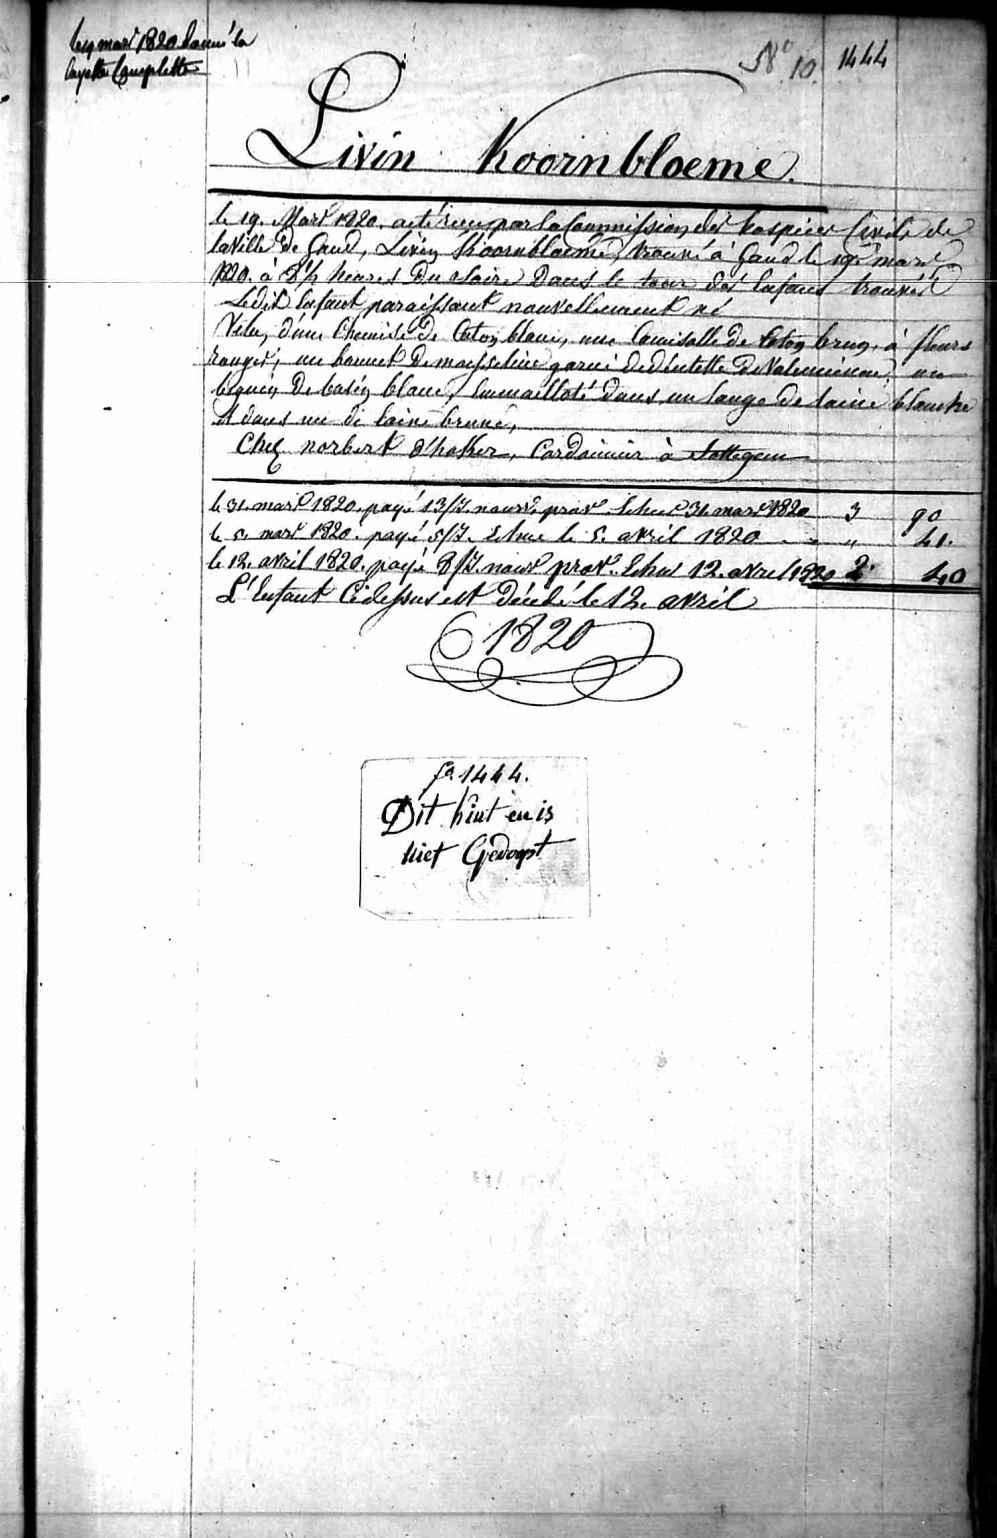 le 19 mars 1820 donné la
layette Complette
N° 10. 1444
Livin Koornbloeme.
le 19. Mars 1820. acté reçu par la Commission des hospices Civils de
la Ville de Gand, Livin Koornbloeme, trouvé à Gand le 19e mars
1820. à 8½ heures du soire dans le tour des Enfans trouvés
Ledit Enfant paraissant nouvellement né
Vetu, d'une Chemise de Coton blanc, une Camisolle de Coton brun, à fleurs
rouges, un bonnet de mousseline garni de dentelle de Valencienne, un
beguin de basin blanc, Emmailloté dans un lange de laine blanche
et dans un de laine brune,
Chez norbert d'hosker, Cordonnier à Sottegem
le 31. mars 1820. payé 13/J. nource prove. Echus 31. mars 1820 3 90
le 5. mars 1820. payé 5/J. Echue le 5. avril 1820 - - „ 41.
le 12. avril 1820. payé 8/J. nource prove. Echus 12. avril 1820 2. 40
L'Enfant Cidessus est décédé le 12. avril
1820
fo. 1444.
Dit kint en is
niet Gedoopt